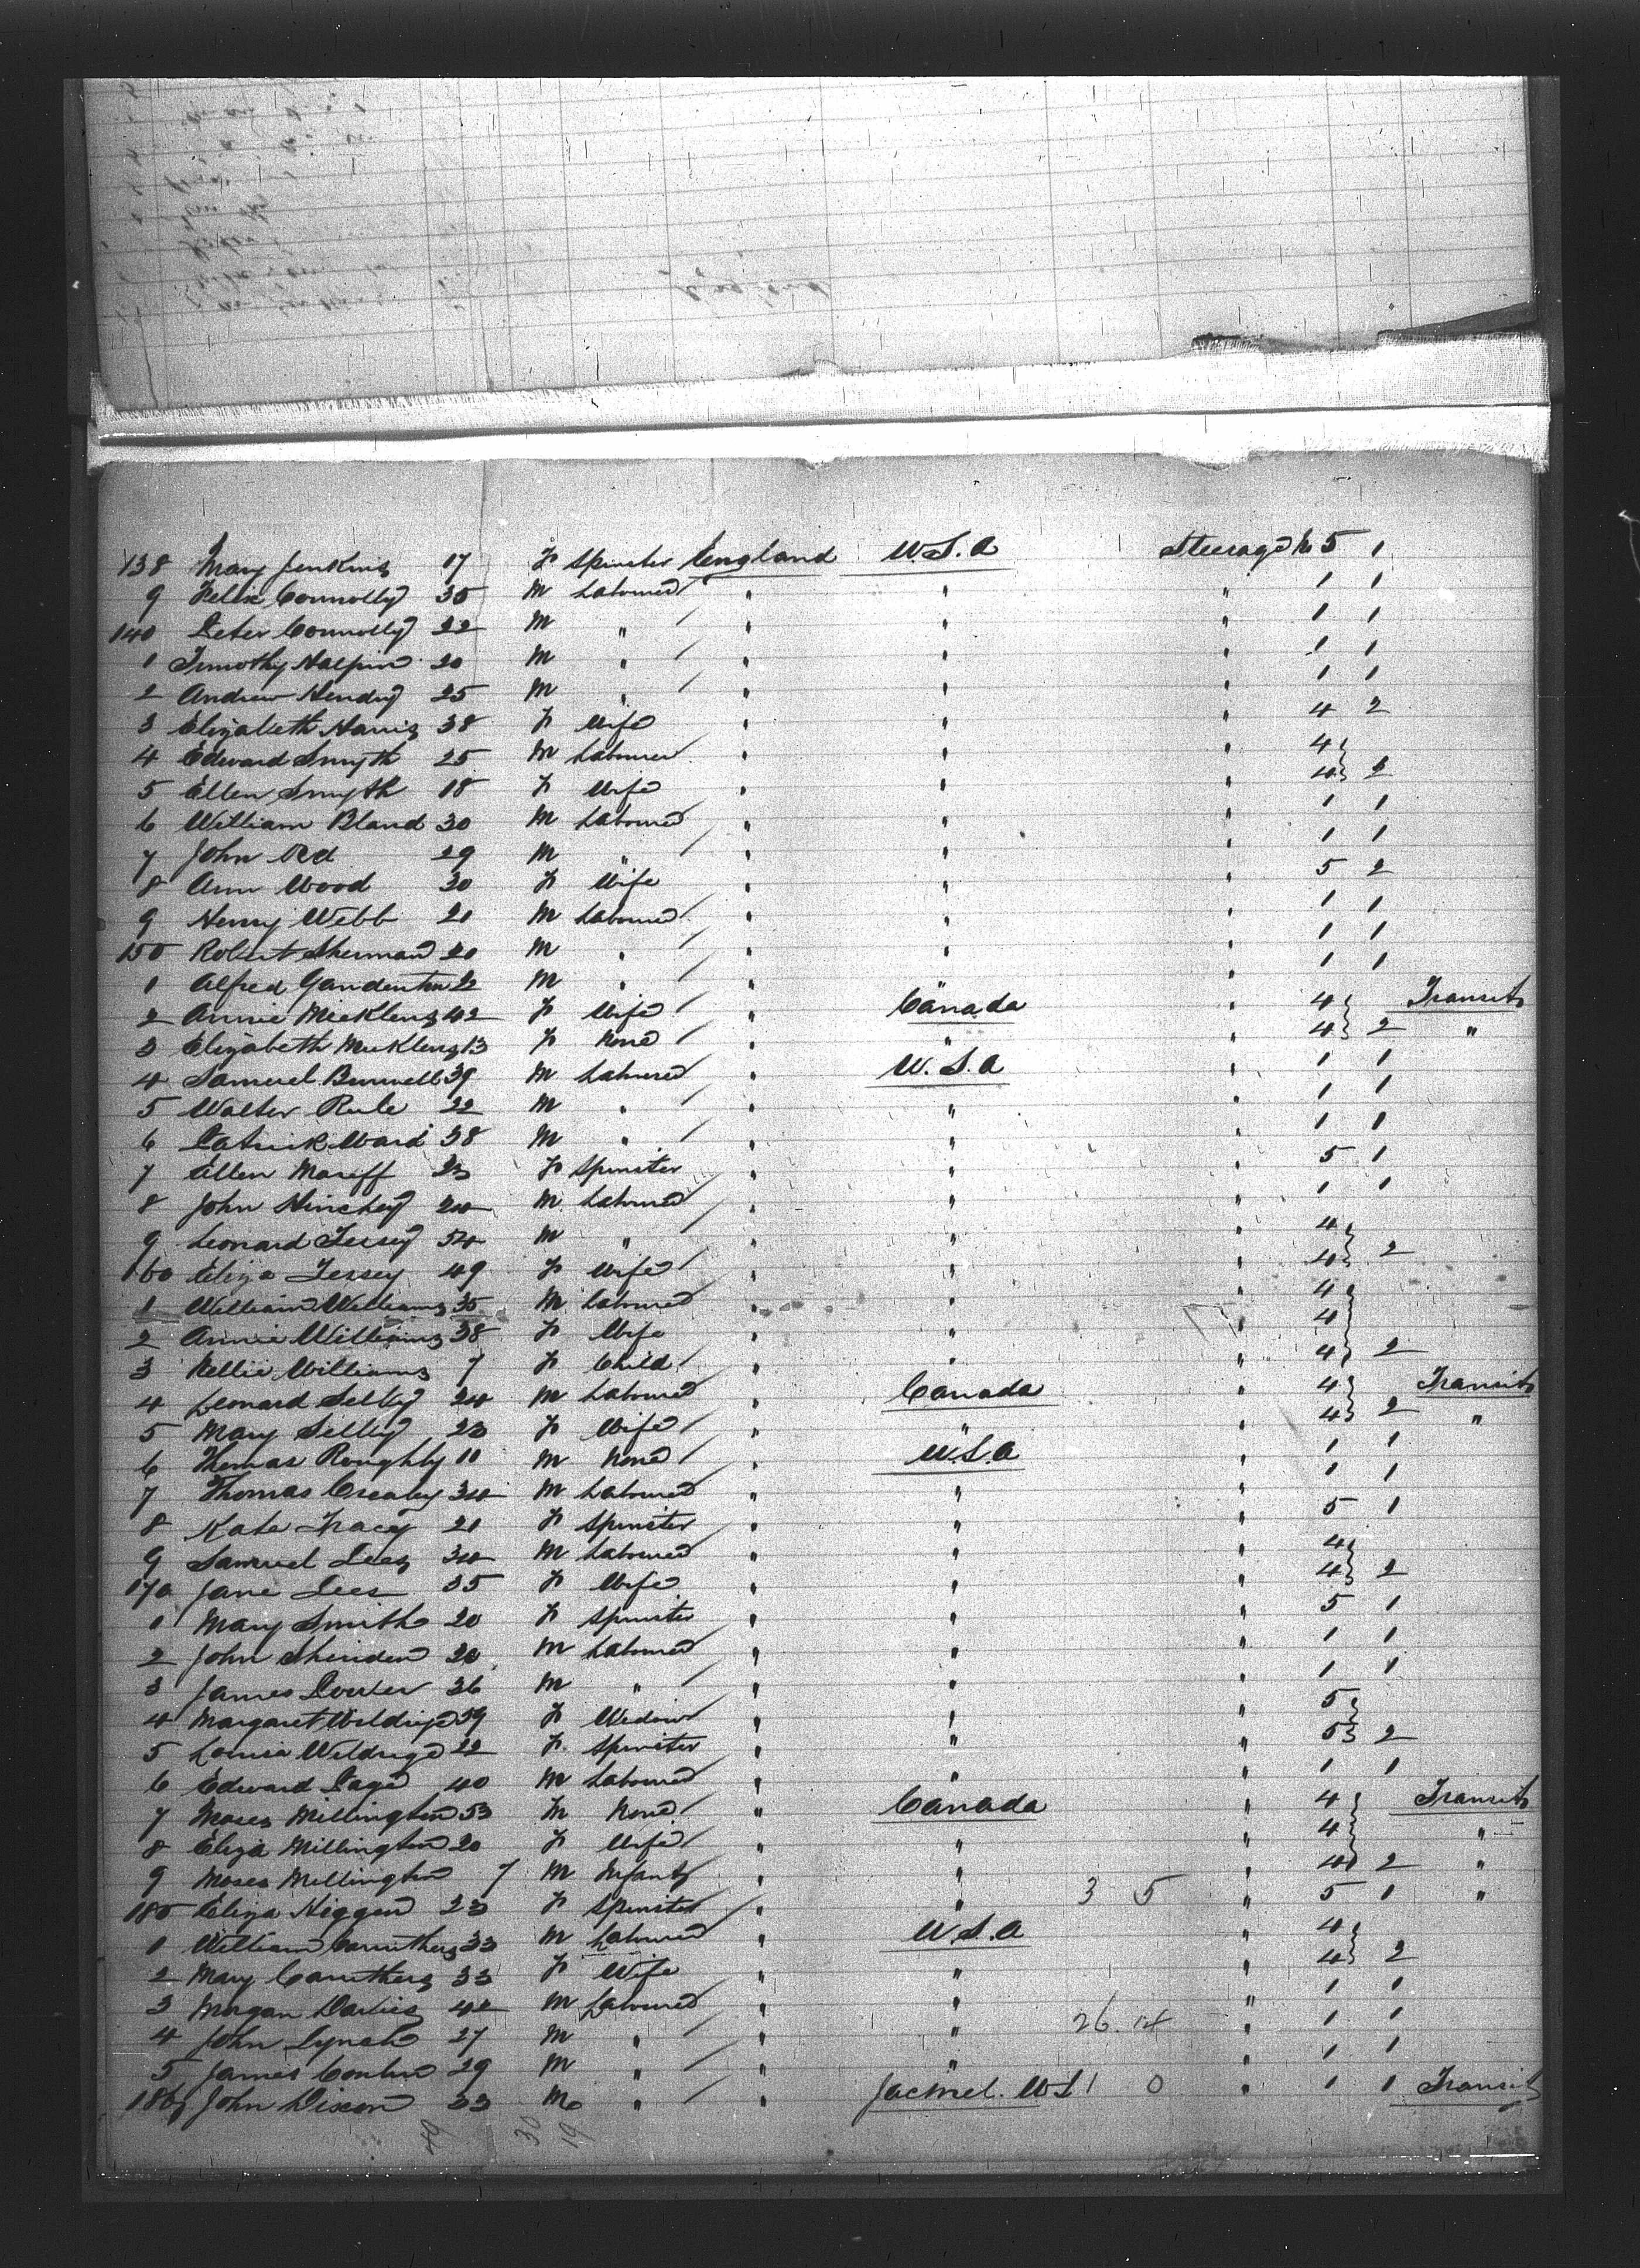 138 Mary Jenkins 17 F Spinster England U.S.A Steerage No 5 1
9 Felix Connolly 35 M Labourer " " " 1 1
140 Peter Connolly 22 M " " " " 1 1
1 Timothy Halpin 20 M " " " " 1 1
2 Andrew Hendry 25 M " " " " 1 1
3 Elizabeth Harris 38 F Wife " " " 4 2
4 Edward Smyth 25 M Labourer " " " 4
5 Ellen Smyth 18 F Wife " " " 4 2
6 William Bland 30 M Labourer " " " 1 1
7 John 29 M " " " " 1 1
8 Ann Wood 30 F Wife " " " 5 2
9 Henry Webb 21 M Labourer " " " 1 1
150 Robert Sherman 20 M " " " " 1 1
1 Alfred 22 M " " " " 1 1
2 Annie Micklens 42 F Wife " Canada " 4 Transit
3 Elizabeth Micklens 13 F None " " " 4 2 "
4 Samuel Bunnell 39 M Labourer " U.S.A " 1 1
5 Walter Rule 22 M " " " " 1 1
6 Patrick Ward 38 M " " " " 1 1
7 Ellen 23 F Spinster " " " 5 1
8 John Hinchey 24 M Labourer " " " 1 1
9 Leonard Tessey 54 M " " " " 4
160 Eliza Tessey 49 F Wife " " " 4 2
1 William Williams 35 M Labourer " " " 4
2 Annie Williams 38 F Wife " " " 4
3 Nellie Williams 7 F Child " " " 4 2
4 Leonard Selby 24 M Labourer " Canada " 4 Transit
5 Mary Selby 23 F Wife " " " 4 2 "
6 Thomas Roughly 11 M None " U.S.A " 1 1
7 Thomas 34 M Labourer " " " 1 1
8 Kate Tracey 21 F Spinster " " " 5 1
9 Samuel Lees 34 M Labourer " " " 4
170 Jane Lees 35 F Wife " " " 4 2
1 Mary Smith 20 F Spinster " " " 5 1
2 John Sheridan M Labourer " " " 1 1
3 James 26 M " " " " 1 1
4 Margaret 59 F Widow " " " 5
5 Louisa 22 F Spinster " " " 5 2
6 Edward Page 40 M Labourer " " " 1 1
7 Moses Millington 53 M None " Canada " 4 Transit
8 Eliza Millington 20 F Wife " " " 4 "
9 Moses Millington 7 M Infant " " " 4 2 "
180 Eliza Higgen 23 F Spinster " " 3 5 " 5 1 "
1 William Caruthers 33 M Labourer " U.S.A " 4
2 Mary Caruthers 33 F Wife " " " 4 2
3 Morgan Davies 42 M Labourer " " " 1 1
4 John Lynch 27 M " " " 26 14 " 1 1
5 James Conlin 29 M " " " " 1 1
186 John Dixon 33 M " " Jacmel. W.I 1 0 " 1 1 Transit
49 30 19